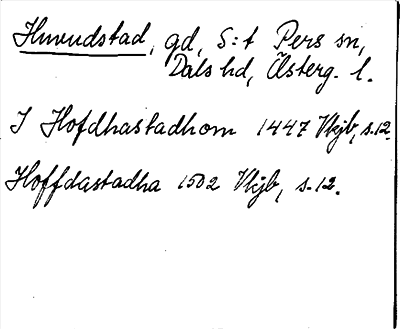 Huvudstad, gd, S:t Pers sn,
Dals hd, Österg. l.
I Hofdhastadhom 1447 Vkjb, s.12.
Hoffdastadha 1502 Vkjb, s.12.